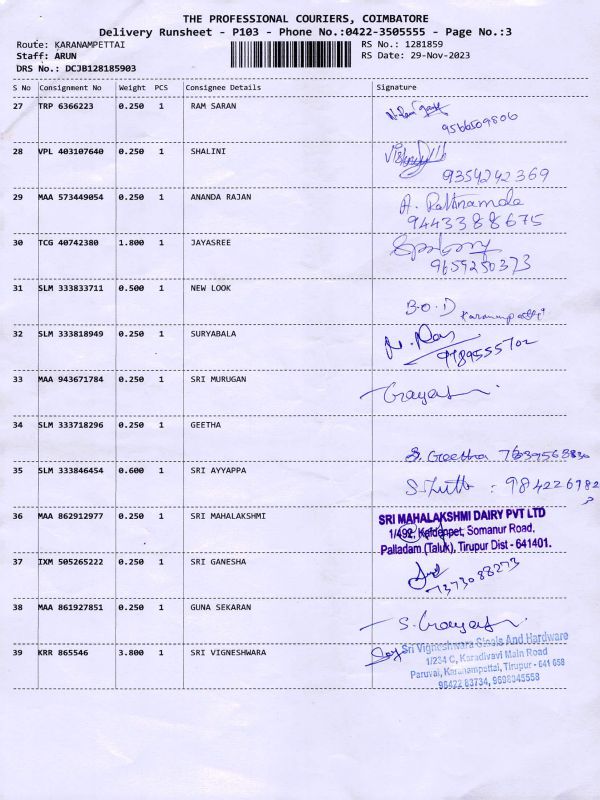 THE PROFESSIONAL COURIERS, COIMBATORE
Delivery Runsheet - P103 - Phone No.:0422-3505555 - Page No.:3
Route: KARANAMPETTAI RS No.: 1281859
Staff: ARUN RS Date: 29-Nov-2023
DRS No.: DCJB128185903
S No Consignment No Weight PCS Consignee Details Signature
27 TRP 6366223 0.250 1 RAM SARAN
9566509806
28 VPL 403107640 0.250 1 SHALINI
9354242369
29 MAA 573449054 0.250 1 ANANDA RAJAN A. Rathnamala
9443388675
30 TCG 40742380 1.800 1 JAYASREE
9659250373
31 SLM 333833711 0.500 1 NEW LOOK B.O.D
32 SLM 333818949 0.250 1 SURYABALA
9789555702
33 MAA 943671784 0.250 1 SRI MURUGAN
34 SLM 333718296 0.250 1 GEETHA
S. Geetha
35 SLM 333846454 0.600 1 SRI AYYAPPA
36 MAA 862912977 0.250 1 SRI MAHALAKSHMI SRI MAHALAKSHMI DAIRY PVT LTD
1/492, Somanur Road,
Palladam (Taluk), Tirupur Dist - 641401.
37 IXM 505265222 0.250 1 SRI GANESHA
7373088273
38 MAA 861927851 0.250 1 GUNA SEKARAN
39 KRR 865546 3.800 1 SRI VIGNESHWARA Sri Vigneshwara And Hardware
1/234 C, Karadivavi Main Road
Paruvai, Karanampettai, Tirupur - 641 658
98422 83734,